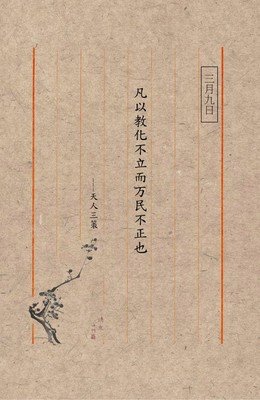 三月九日
凡以教化不立而万民不正也
——天人三策